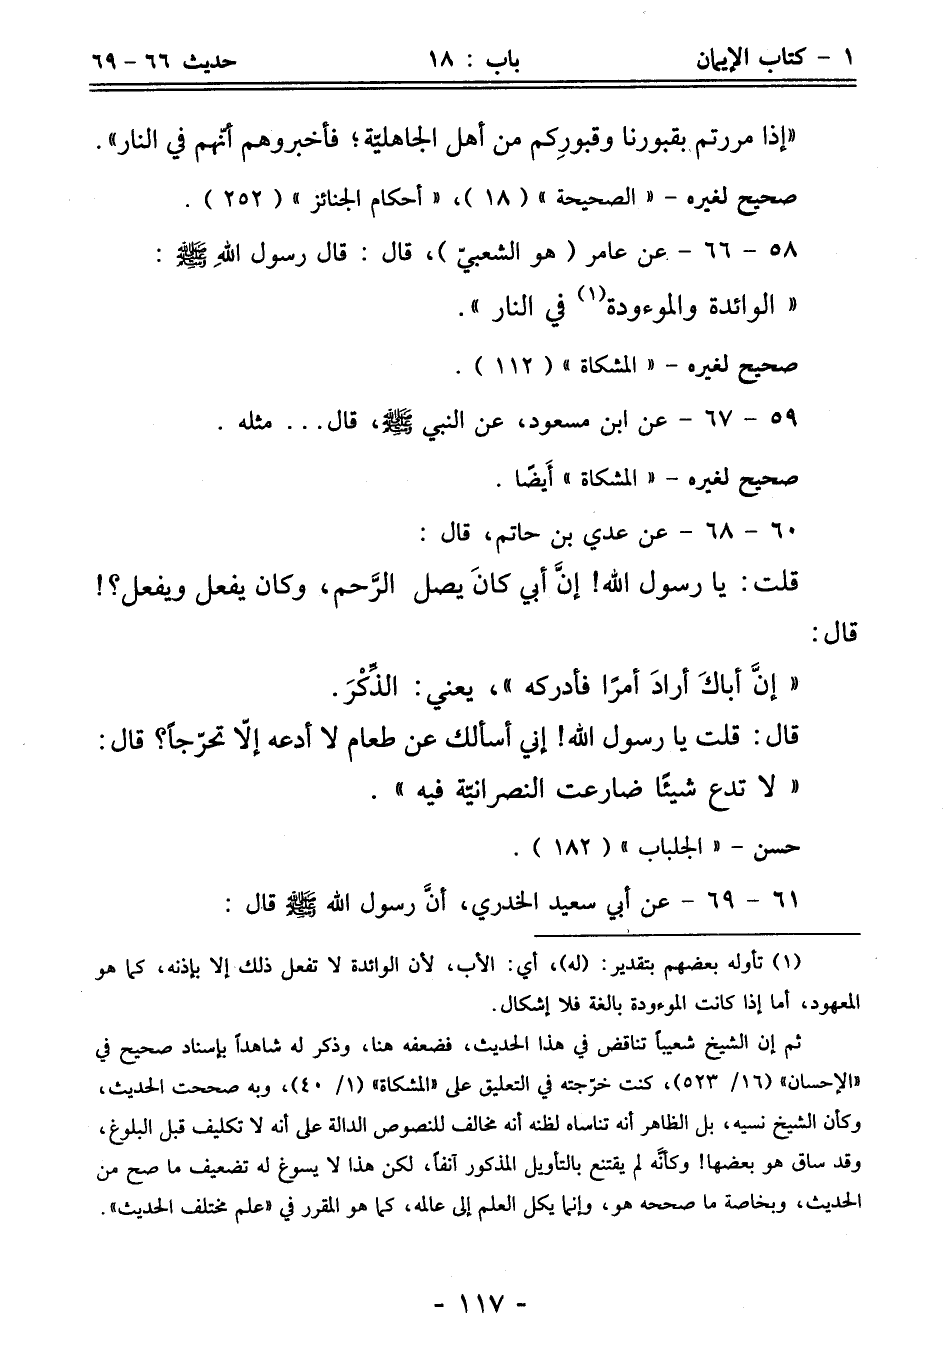 ١ - كتاب الإيمان باب : ١٨ حديث ٦٦ - ٦٩
«إذا مررتم بقبورنا وقبوركِم من أهل الجاهليّة؛ فأخبروهم أنّهم في النار».
صحيح لغيره - « الصحيحة » ( ١٨ )، « أحكام الجنائز » ( ٢٥٢ ) .
٥٨ - ٦٦ - عن عامر ( هو الشعبيّ )، قال : قال رسول اللهِ ﷺ :
« الوائدة والموءودة(١) في النار » .
صحيح لغيره - « المشكاة » ( ١١٢ ) .
٥٩ - ٦٧ - عن ابن مسعود، عن النبي ﷺ، قال... مثله .
صحيح لغيره - « المشكاة » أَيضًا .
٦٠ - ٦٨ - عن عدي بن حاتم، قال :
قلت: يا رسول الله! إنَّ أبي كانَ يصل الرَّحم، وكان يفعل ويفعل؟!
قال:
« إنَّ أباكَ أرادَ أمرًا فأدركه »، يعني: الذِّكْرَ.
قال: قلت يا رسول الله! إني أسألك عن طعام لا أدعه إلّا تحرّجاً؟ قال:
« لا تدع شيئًا ضارعت النصرانيّة فيه » .
حسن - « الجلباب » ( ١٨٢ ) .
٦١ - ٦٩ - عن أبي سعيد الخدري، أنَّ رسول الله ﷺ قال :
(١) تأوله بعضهم بتقدير: (له)، أي: الأب، لأن الوائدة لا تفعل ذلك إلا بإذنه، كما هو
المعهود، أما إذا كانت الموءودة بالغة فلا إشكال.
ثم إن الشيخ شعيباً تناقض في هذا الحديث، فضعفه هنا، وذكر له شاهداً بإسناد صحيح في
«الإحسان» (١٦/ ٥٢٣)، كنت خرّجته في التعليق على «المشكاة» (١/ ٤٠)، وبه صححت الحديث،
وكأن الشيخ نسيه، بل الظاهر أنه تناساه لظنه أنه مخالف للنصوص الدالة على أنه لا تكليف قبل البلوغ،
وقد ساق هو بعضها! وكأنَّه لم يقتنع بالتأويل المذكور آنفاً، لكن هذا لا يسوغ له تضعيف ما صح من
الحديث، وبخاصة ما صححه هو، وإنما يكل العلم إلى عالمه، كما هو المقرر في «علم مختلف الحديث».
- ١١٧ -